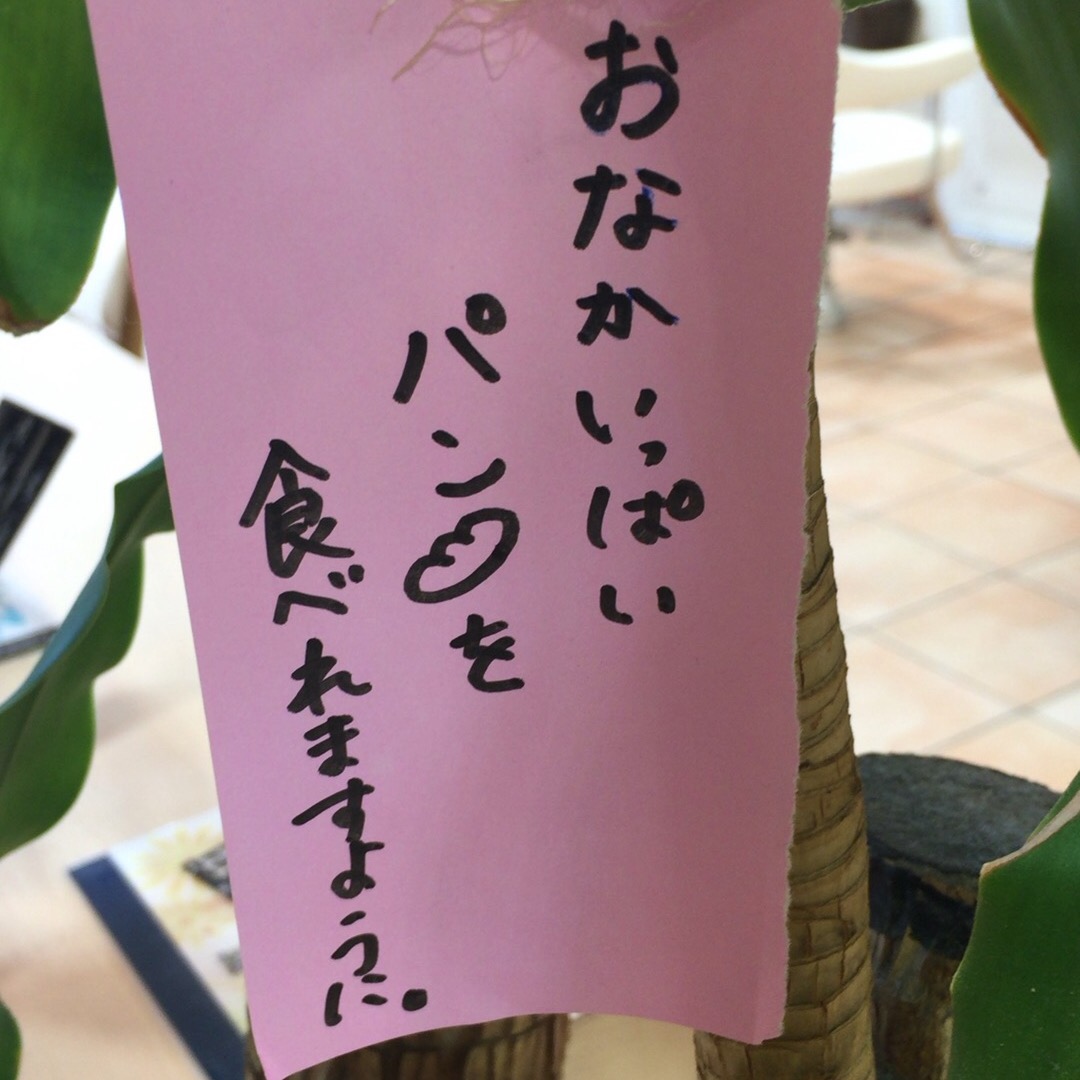 おなかいっぱい
パンを
食べれますように.